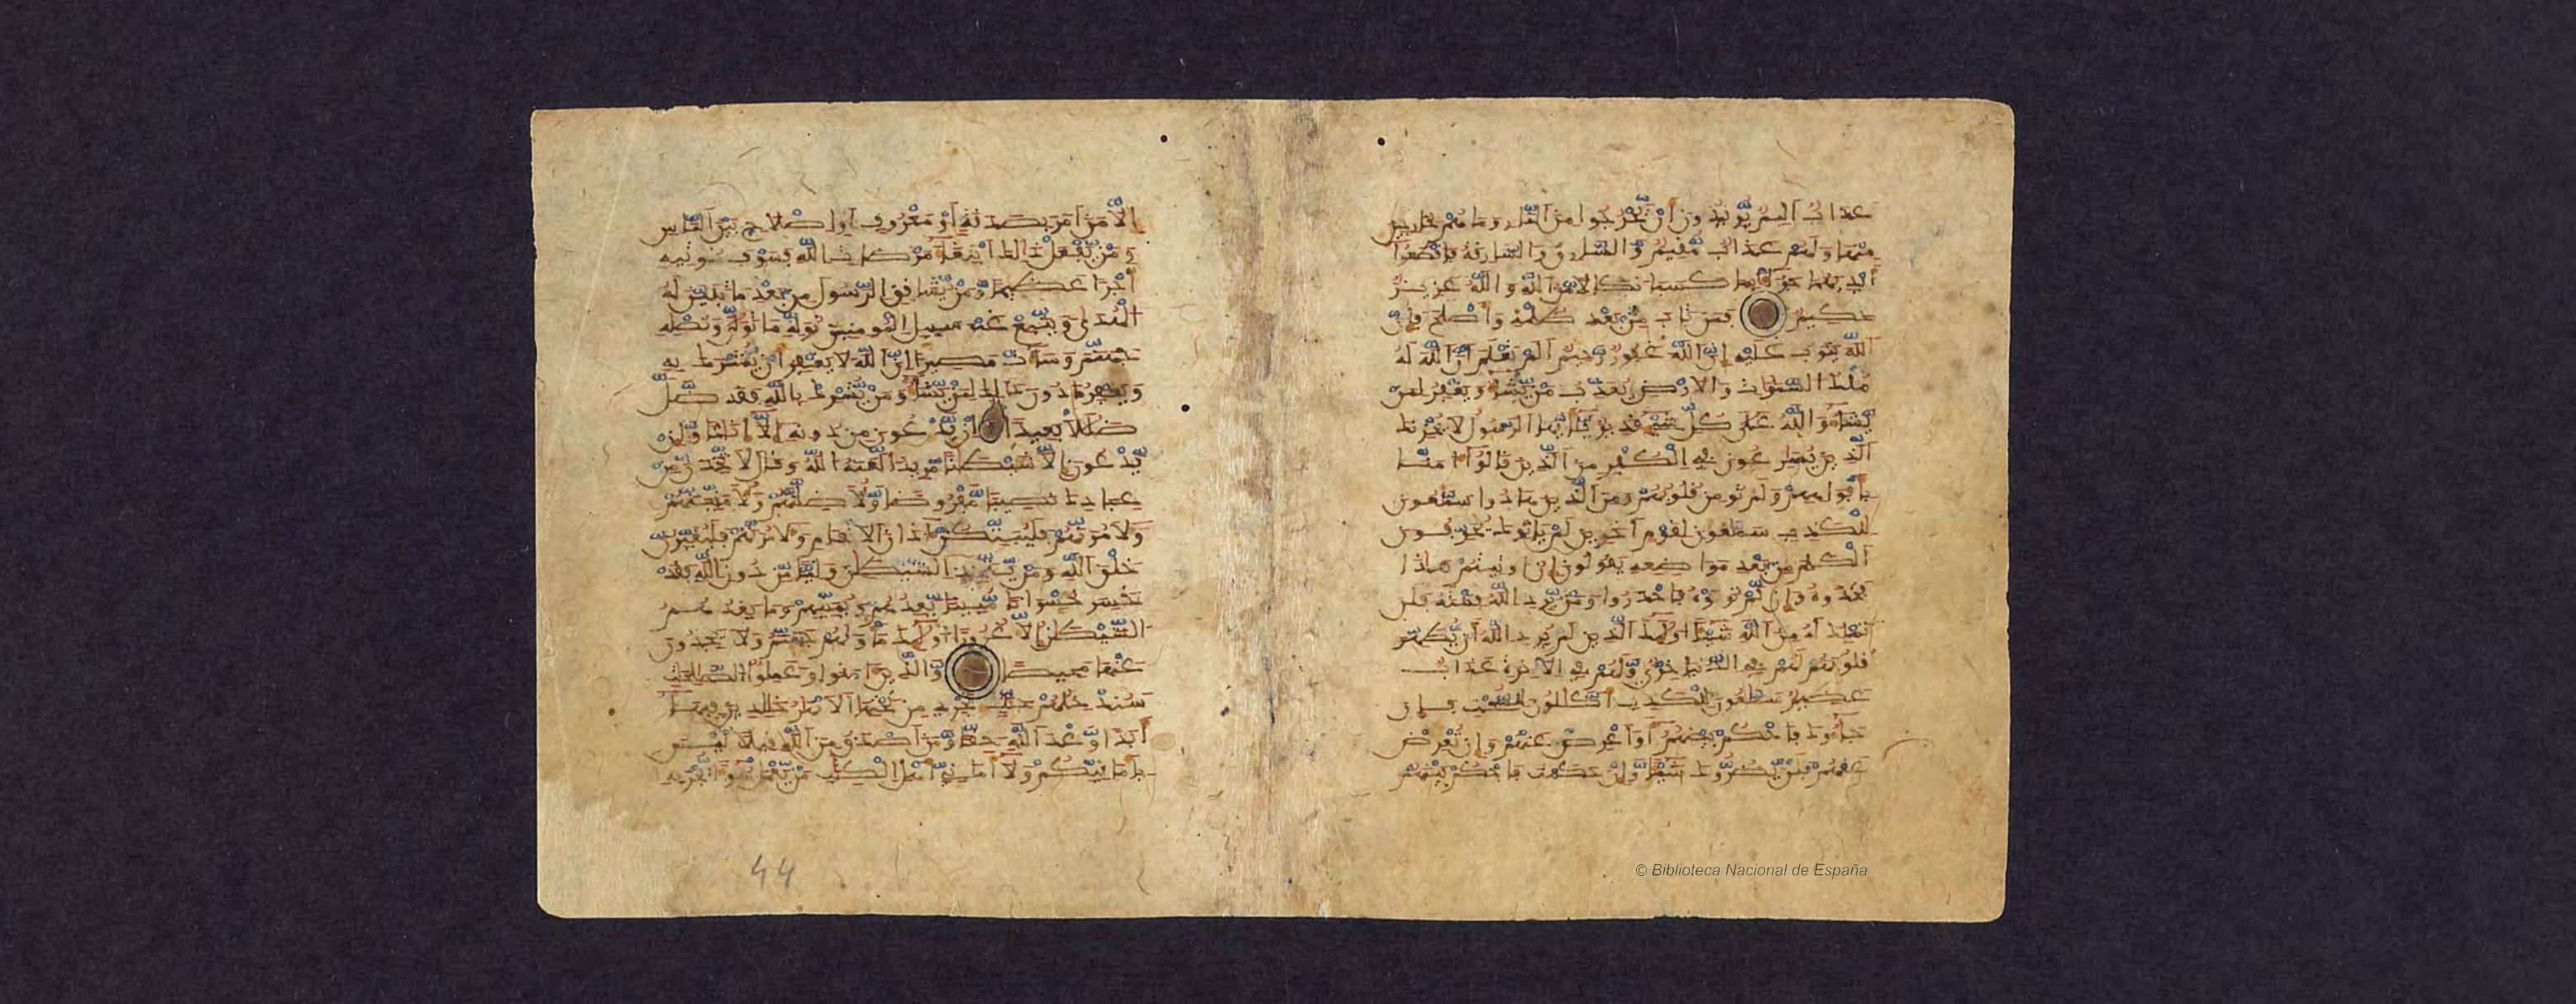 عذاب اليم يريدون ان يخرجوا من النار وما هم بخارجين
منها ولهم عذاب مقيم والسارق والسارقة فاقطعوا
ايديهما جزاء بما كسبا نكالا من الله والله عزيز
حكيم فمن تاب من بعد ظلمه واصلح فان
الله يتوب عليه ان الله غفور رحيم الم تعلم ان الله له
ملك السموات والارض يعذب من يشاء ويغفر لمن
يشاء والله على كل شيء قدير يايها الرسول لا يحزنك
الذين يسارعون في الكفر من الذين قالوا امنا
بافواههم ولم تومن قلوبهم ومن الذين هادوا سمعون
للكذب سمعون لقوم اخرين لم ياتوك يحرفون
الكلم من بعد مواضعه يقولون ان اوتيتم هاذا
فخذوه وان لم توتوه فاحذروا ومن يرد الله فتنته فلن
تملك له من الله شيا اولئك الذين لم يرد الله ان يطهر
قلوبهم لهم في الدنيا خزي ولهم في الاخرة عذاب
عظيم سمعون للكذب اكالون للسحت فان
جاءوك فاحكم بينهم او اعرض عنهم وان تعرض
عنهم فلن يضروك شيا وان حكمت فاحكم بينهم
الا من امر بصدقة او معروف او اصلاح بين الناس
ومن يفعل ذالك ابتغاء مرضات الله فسوف نوتيه
اجرا عظيما ومن يشاقق الرسول من بعد ما تبين له
الهدى ويتبع غير سبيل المومنين نوله ما تولى ونصله
جهنم وساءت مصيرا ان الله لا يغفر ان يشرك به
ويغفر ما دون ذالك لمن يشاء ومن يشرك بالله فقد ضل
ضللا بعيدا ان يدعون من دونه الا اناثا وان
يدعون الا شيطنا مريدا لعنه الله وقال لاتخذن من
عبادك نصيبا مفروضا ولاضلنهم ولامنينهم
ولامرنهم فليبتكن اذان الانعام ولامرنهم فليغيرن
خلق الله ومن يتخذ الشيطن وليا من دون الله فقد
خسر خسرانا مبينا يعدهم ويمنيهم وما يعدهم
الشيطن الا غرورا اولئك ماويهم جهنم ولا يجدون
عنها محيصا والذين امنوا وعملوا الصلحت
سندخلهم جنت تجري من تحتها الانهر خالدين فيها
ابدا وعد الله حقا ومن اصدق من الله قيلا ليس
بامانيكم ولا اماني اهل الكتب من يعمل سوءا يجز به
44
© Biblioteca Nacional de España